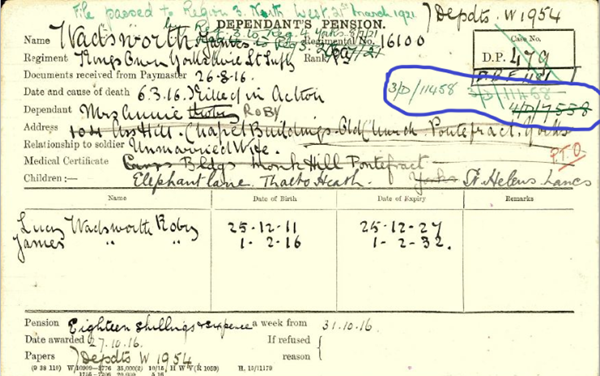 File passed to Region 3. North West 31st March 1921
DEPENDANT'S PENSION. Depdts. W 1954
Name Wadsworth James Regimental No. 16100
Case No.
D.P. 479
Regiment Kings Own Yorkshire Lt. Infty Rank
Documents received from Paymaster 26-8-16.
3/D/11458 3/D/11458
Date and cause of death 6.3.16. Killed in Action
4/D/7538
Dependant Mrs Annie ROBY
Address Hill. Chapel Buildings. Old Church. Pontefract. Yorks
Relationship to soldier Unmarried Wife.
P.T.O.
Medical Certificate Bldgs Monk Hill Pontefract
Children:— Elephant Lane. Thatto Heath. Yorks St. Helens Lancs
Name Date of Birth Date of Expiry Remarks
Lucy Wadsworth Roby 25-12-11 25-12-27
James " " 1-2-16 1-2-32.
Pension Eighteen shillings & sixpence a week from 31.10.16.
Date awarded 27.10.16. If refused
Papers Depdts W 1954 reason